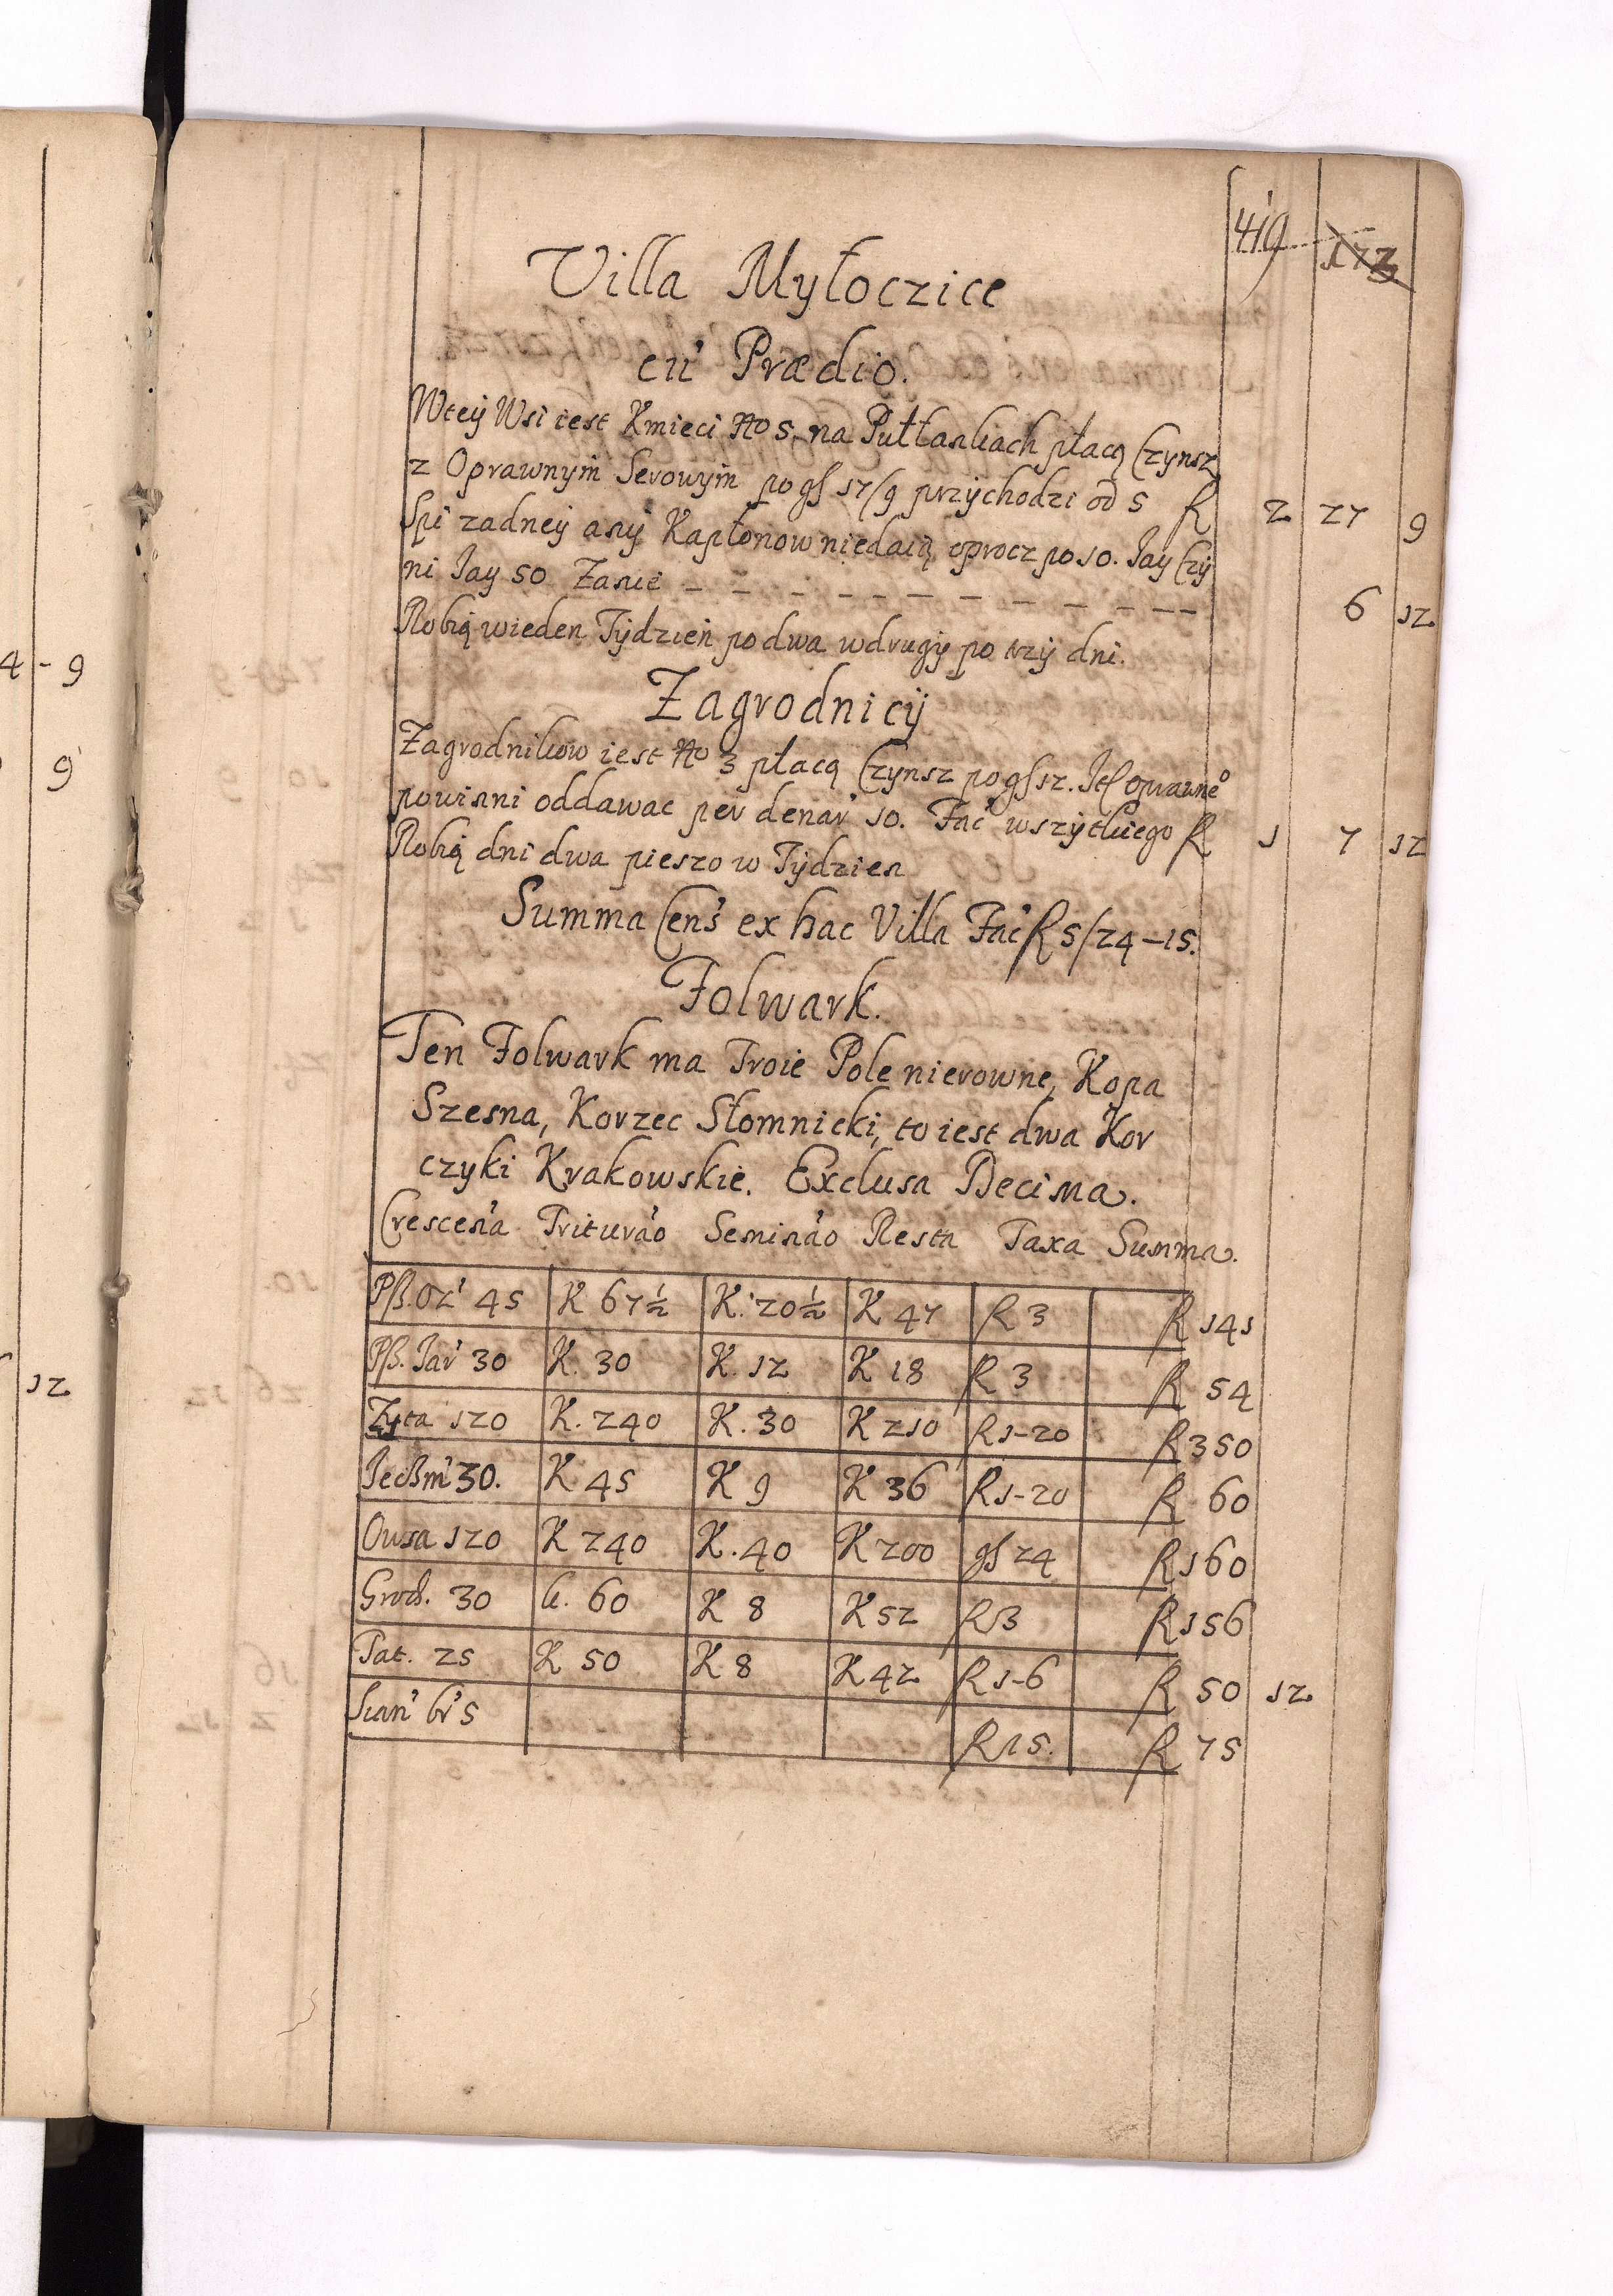 4 - 9
9
12
419 173
Villa Myłoczice
cu' Prædio.
Wtey Wsi iest Kmieci No 5. na Pułłankach płacą Czynsz
z Oprawnym Serowym po gs 17/9 przychodzi od 5 R 2 27 9
Spi zadney any Kapłonow niedaią oprocz po 10. Jay Czy
ni Jay 50 Zasie - - - - - - - - - - - - 6 12
Robią wieden Tydzień po dwa wdrugy po trzy dni.
Zagrodnicy
Zagrodnikow iest No 3 płacą Czynsz po gs 12. oprawne°
powinni oddawac per denar' 10. Fac' wszytkiego R 1 7 12
Robią dni dwa pieszo w Tydzien
Summa Cens' ex hac Villa Fac' R 5/24-15.
Folwark.
Ten Folwark ma Troie Pole nierowne, Kopa
Szesna, Korzec Słomnicki, to iest dwa Kor
czyki Krakowskie. Exclusa Decima.
Crescen'a Triturá'o Seminá'o Resta Taxa Summa.
Pß. Oz' 45 K 67½ K. 20½ K 47 R 3 R 141
Pß. Jar' 30 K. 30 K. 12 K 18 R 3 R 54
Zyta 120 K. 240 K. 30 K 210 R 1-20 R 350
Jećzm' 30. K 45 K 9 K 36 R 1-20 R 60
Owsa 120 K 240 K. 40 K 200 gs 24 R 160
Groch. 30 k. 60 K 8 K 52 R 3 R 156
Tat. 25 K 50 K 8 K 42 R 1-6 R 50 12
Sian' br' 5 R 15. R 75